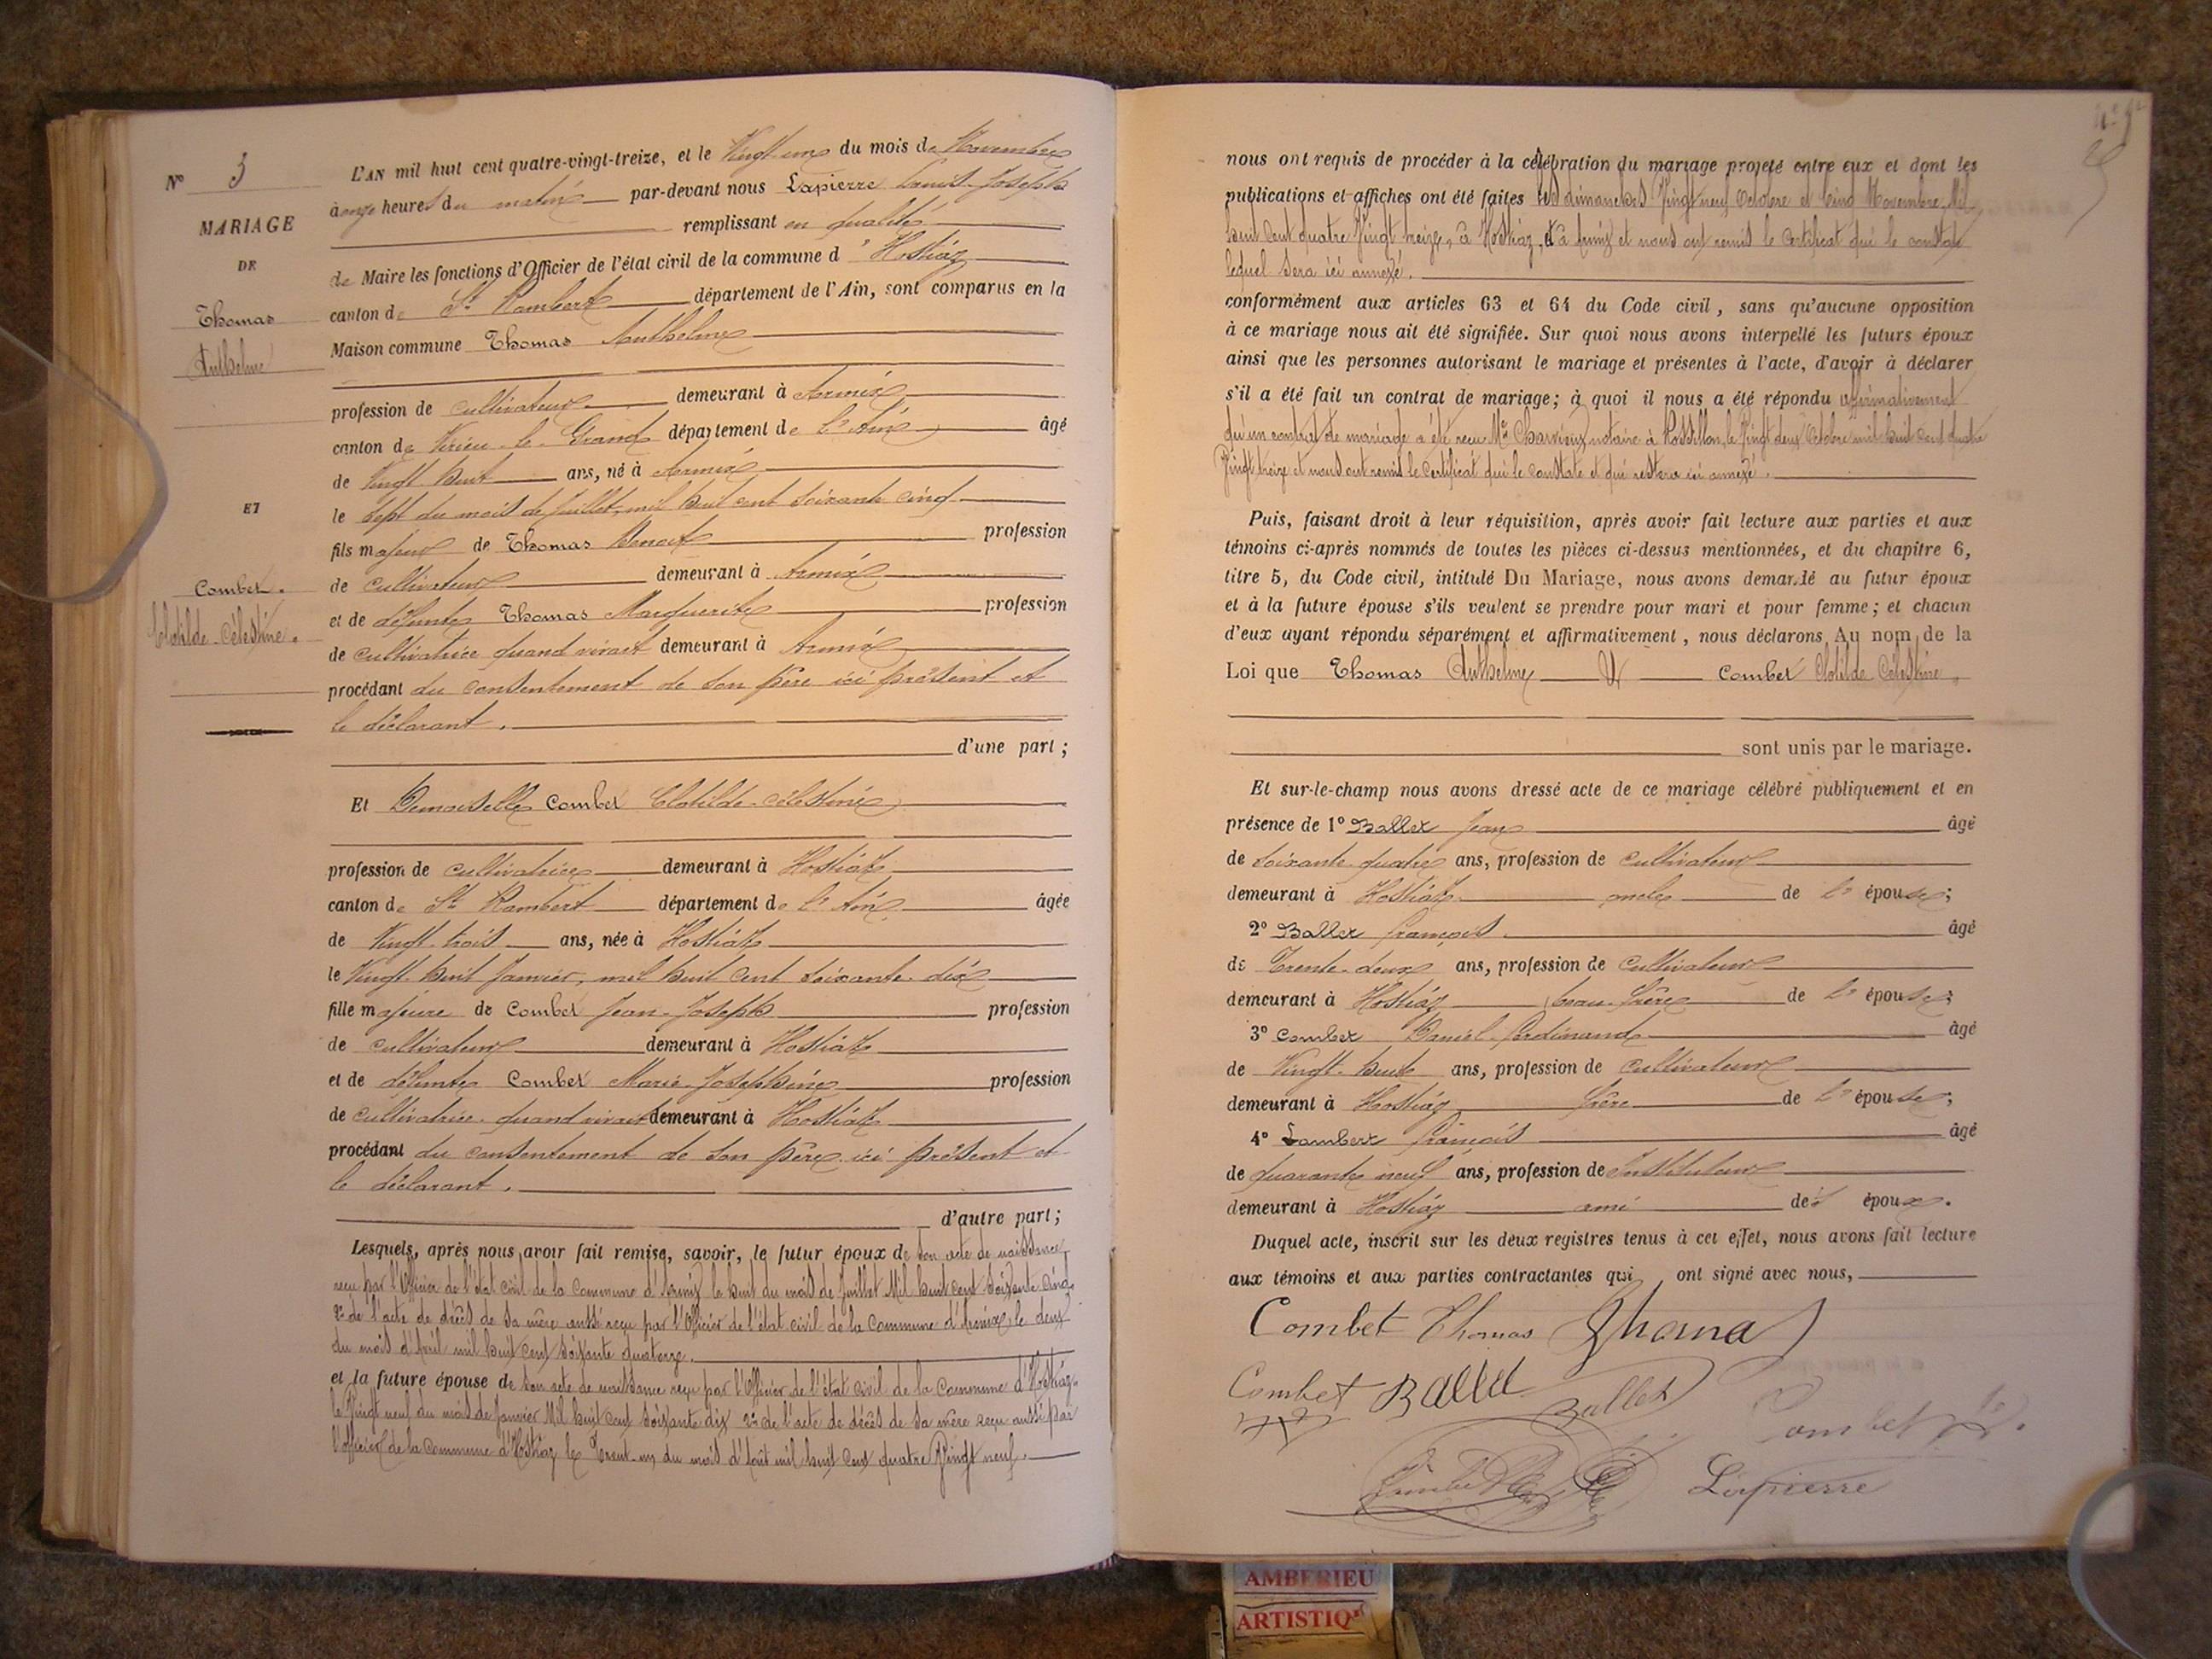 N° 3
MARIAGE
DE
Thomas
Anthelme
ET
Combet.
Clotilde-Célestine.
L'AN mil huit cent quatre-vingt-treize, et le Vingt-un du mois de Novembre
à onze heures du matin par-devant nous Lapierre Louis-Joseph
remplissant en qualité
de Maire les fonctions d'Officier de l'état civil de la commune d'Hostiaz
canton de St Rambert département de l'Ain, sont comparus en la
Maison commune Thomas Anthelme
profession de cultivateur demeurant à Armix
canton de Virieu-le-Grand département de l'Ain âgé
de Vingt-huit ans, né à Armix
le sept du mois de Juillet, mil huit cent soixante cinq
fils majeur de Thomas Benoit profession
de cultivateur demeurant à Armix
et de défunte Thomas Marguerite profession
de cultivatrice quand vivait demeurant à Armix
procédant du consentement de son père ici présent et
le déclarant.
d'une part ;
Et Demoiselle Combet Clotilde-Célestine
profession de cultivatrice demeurant à Hostiaz
canton de St Rambert département de l'Ain âgée
de Vingt-trois ans, née à Hostiaz
le Vingt-huit Janvier, mil huit cent soixante-dix
fille majeure de Combet Jean-Joseph profession
de cultivateur demeurant à Hostiaz
et de défunte Combet Marie-Joséphine profession
de cultivatrice quand vivait demeurant à Hostiaz
procédant du consentement de son père ici présent et
le déclarant.
d'autre part ;
Lesquels, après nous avoir fait remise, savoir, le futur époux de son acte de naissance
reçu par l'Officier de l'état civil de la Commune d'Armix le huit du mois de Juillet Mil huit cent soixante cinq
2° de l'acte de décès de sa mère aussi reçu par l'Officier de l'état civil de la Commune d'Armix, le deux
du mois d'Avril mil huit cent soixante quatorze.
et la future épouse de son acte de naissance reçu par l'Officier de l'état civil de la Commune d'Hostiaz
le Vingt neuf du mois de Janvier Mil huit cent soixante dix 2° de l'acte de décès de sa mère reçu aussi par
l'officier de la commune d'Hostiaz le Trent-un du mois d'Août mil huit cent quatre Vingt neuf.
nous ont requis de procéder à la célébration du mariage projeté entre eux et dont les
publications et affiches ont été faites les dimanches Vingt neuf Octobre et Cinq Novembre Mil
huit cent quatre Vingt treize, à Hostiaz, et à Armix et nous ont remis le certificat qui le constate
lequel sera ici annexé.
conformément aux articles 63 et 64 du Code civil, sans qu'aucune opposition
à ce mariage nous ait été signifiée. Sur quoi nous avons interpellé les futurs époux
ainsi que les personnes autorisant le mariage et présentes à l'acte, d'avoir à déclarer
s'il a été fait un contrat de mariage ; à quoi il nous a été répondu affirmativement
qu'un contrat de mariage a été reçu Me notaire à Rossillon, le Vingt deux Octobre mil huit cent quatre
Vingt treize et nous ont remis le certificat qui le constate et qui restera ici annexé.
Puis, faisant droit à leur réquisition, après avoir fait lecture aux parties et aux
témoins ci-après nommés de toutes les pièces ci-dessus mentionnées, et du chapitre 6,
titre 5, du Code civil, intitulé Du Mariage, nous avons demandé au futur époux
et à la future épouse s'ils veulent se prendre pour mari et pour femme ; et chacun
d'eux ayant répondu séparément et affirmativement, nous déclarons Au nom de la
Loi que Thomas Anthelme Et Combet Clotilde Célestine
sont unis par le mariage.
Et sur-le-champ nous avons dressé acte de ce mariage célébré publiquement et en
présence de 1° Ballet Jean âgé
de soixante-quatre ans, profession de cultivateur
demeurant à Hostiaz oncle de l'épouse ;
2° Ballet François. âgé
de Trente-deux ans, profession de cultivateur
demeurant à Hostiaz beau-frère de l'épouse ;
3° Combet Daniel-Ferdinand âgé
de Vingt-huit ans, profession de cultivateur
demeurant à Hostiaz frère de l'épouse ;
4° Lambert François âgé
de quarante neuf ans, profession de Instituteur
demeurant à Hostiaz ami des époux.
Duquel acte, inscrit sur les deux registres tenus à cet effet, nous avons fait lecture
aux témoins et aux parties contractantes qui ont signé avec nous,
Combet Thomas Thomas
Combet Ballet Ballet
Combet
Lapierre
AMBERIEU
ARTISTIQ